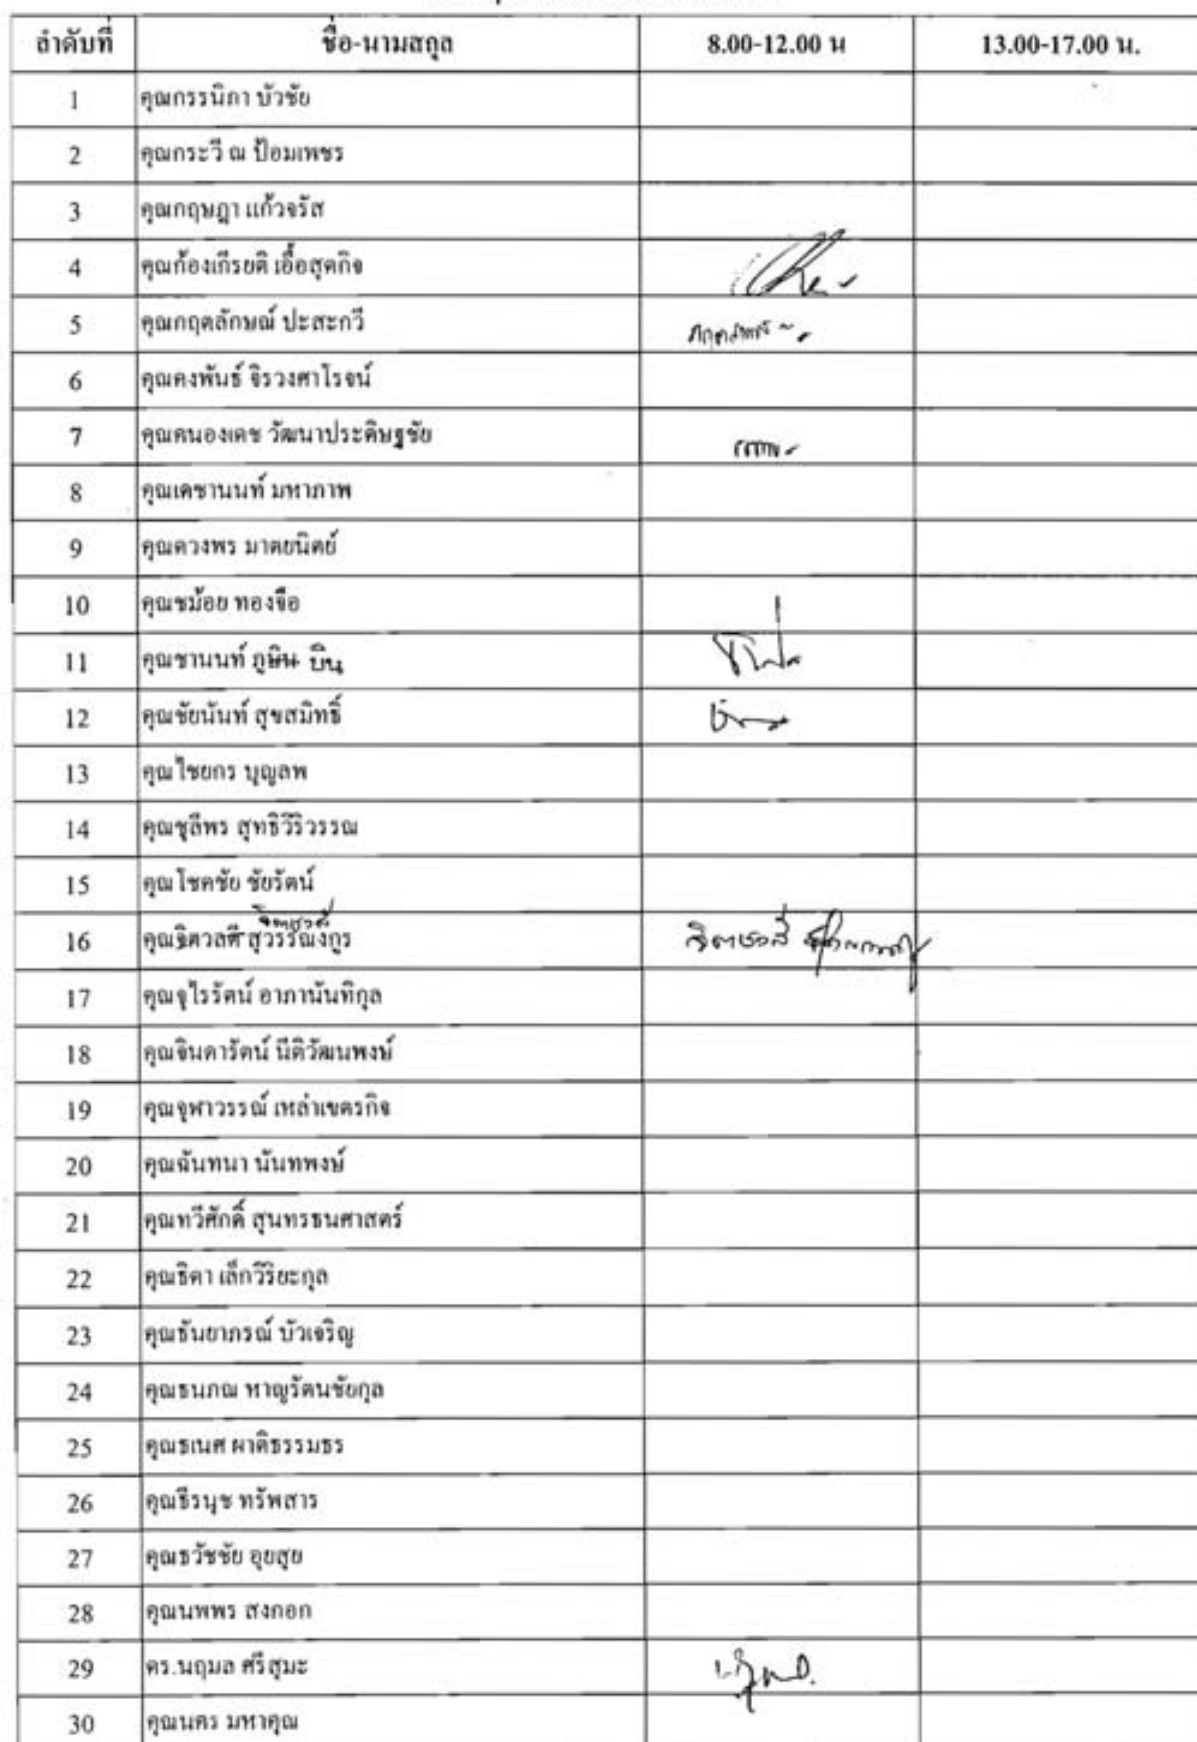 ลำดับที่ ชื่อ-นามสกุล 8.00-12.00 น 13.00-17.00 น.
1 คุณกรรนิกา บัวชัย
2 คุณกระวี ณ ป้อมเพชร
3 คุณกฤษฎา แก้วจรัส
4 คุณก้องเกียรติ เอื้อสุดกิจ
5 คุณกฤตลักษณ์ ปะสะกวี
6 คุณคงพันธ์ จิรวงศาโรจน์
7 คุณคนองเดช วัฒนาประดิษฐชัย
8 คุณเดชานนท์ มหาภาพ
9 คุณดวงพร มาตยนิตย์
10 คุณชม้อย ทองจือ
11 คุณชานนท์ ภูษิน บิน
12 คุณชัยนันท์ สุขสมิทธิ์
13 คุณไชยกร บุญลพ
14 คุณชุลีพร สุทธิวิริวรรณ
15 คุณโชคชัย ชัยรัตน์
16 คุณจิตวลตี สุวรรณังกูร
17 คุณจุไรรัตน์ อาภานันทิกุล
18 คุณจินดารัตน์ นีติวัฒนพงษ์
19 คุณจุฬาวรรณ์ เหล่าเขตรกิจ
20 คุณฉันทนา นันทพงษ์
21 คุณทวีศักดิ์ สุนทรธนศาสตร์
22 คุณธิดา เล็กวิริยะกุล
23 คุณธันยาภรณ์ บัวเจริญ
24 คุณธนภณ หาญรัตนชัยกุล
25 คุณธเนศ ผาติธรรมธร
26 คุณธีรนุช ทรัพสาร
27 คุณธวัชชัย อุยสุย
28 คุณนพพร สงกอก
29 ดร.นฤมล ศรีสุมะ
30 คุณนคร มหาคุณ